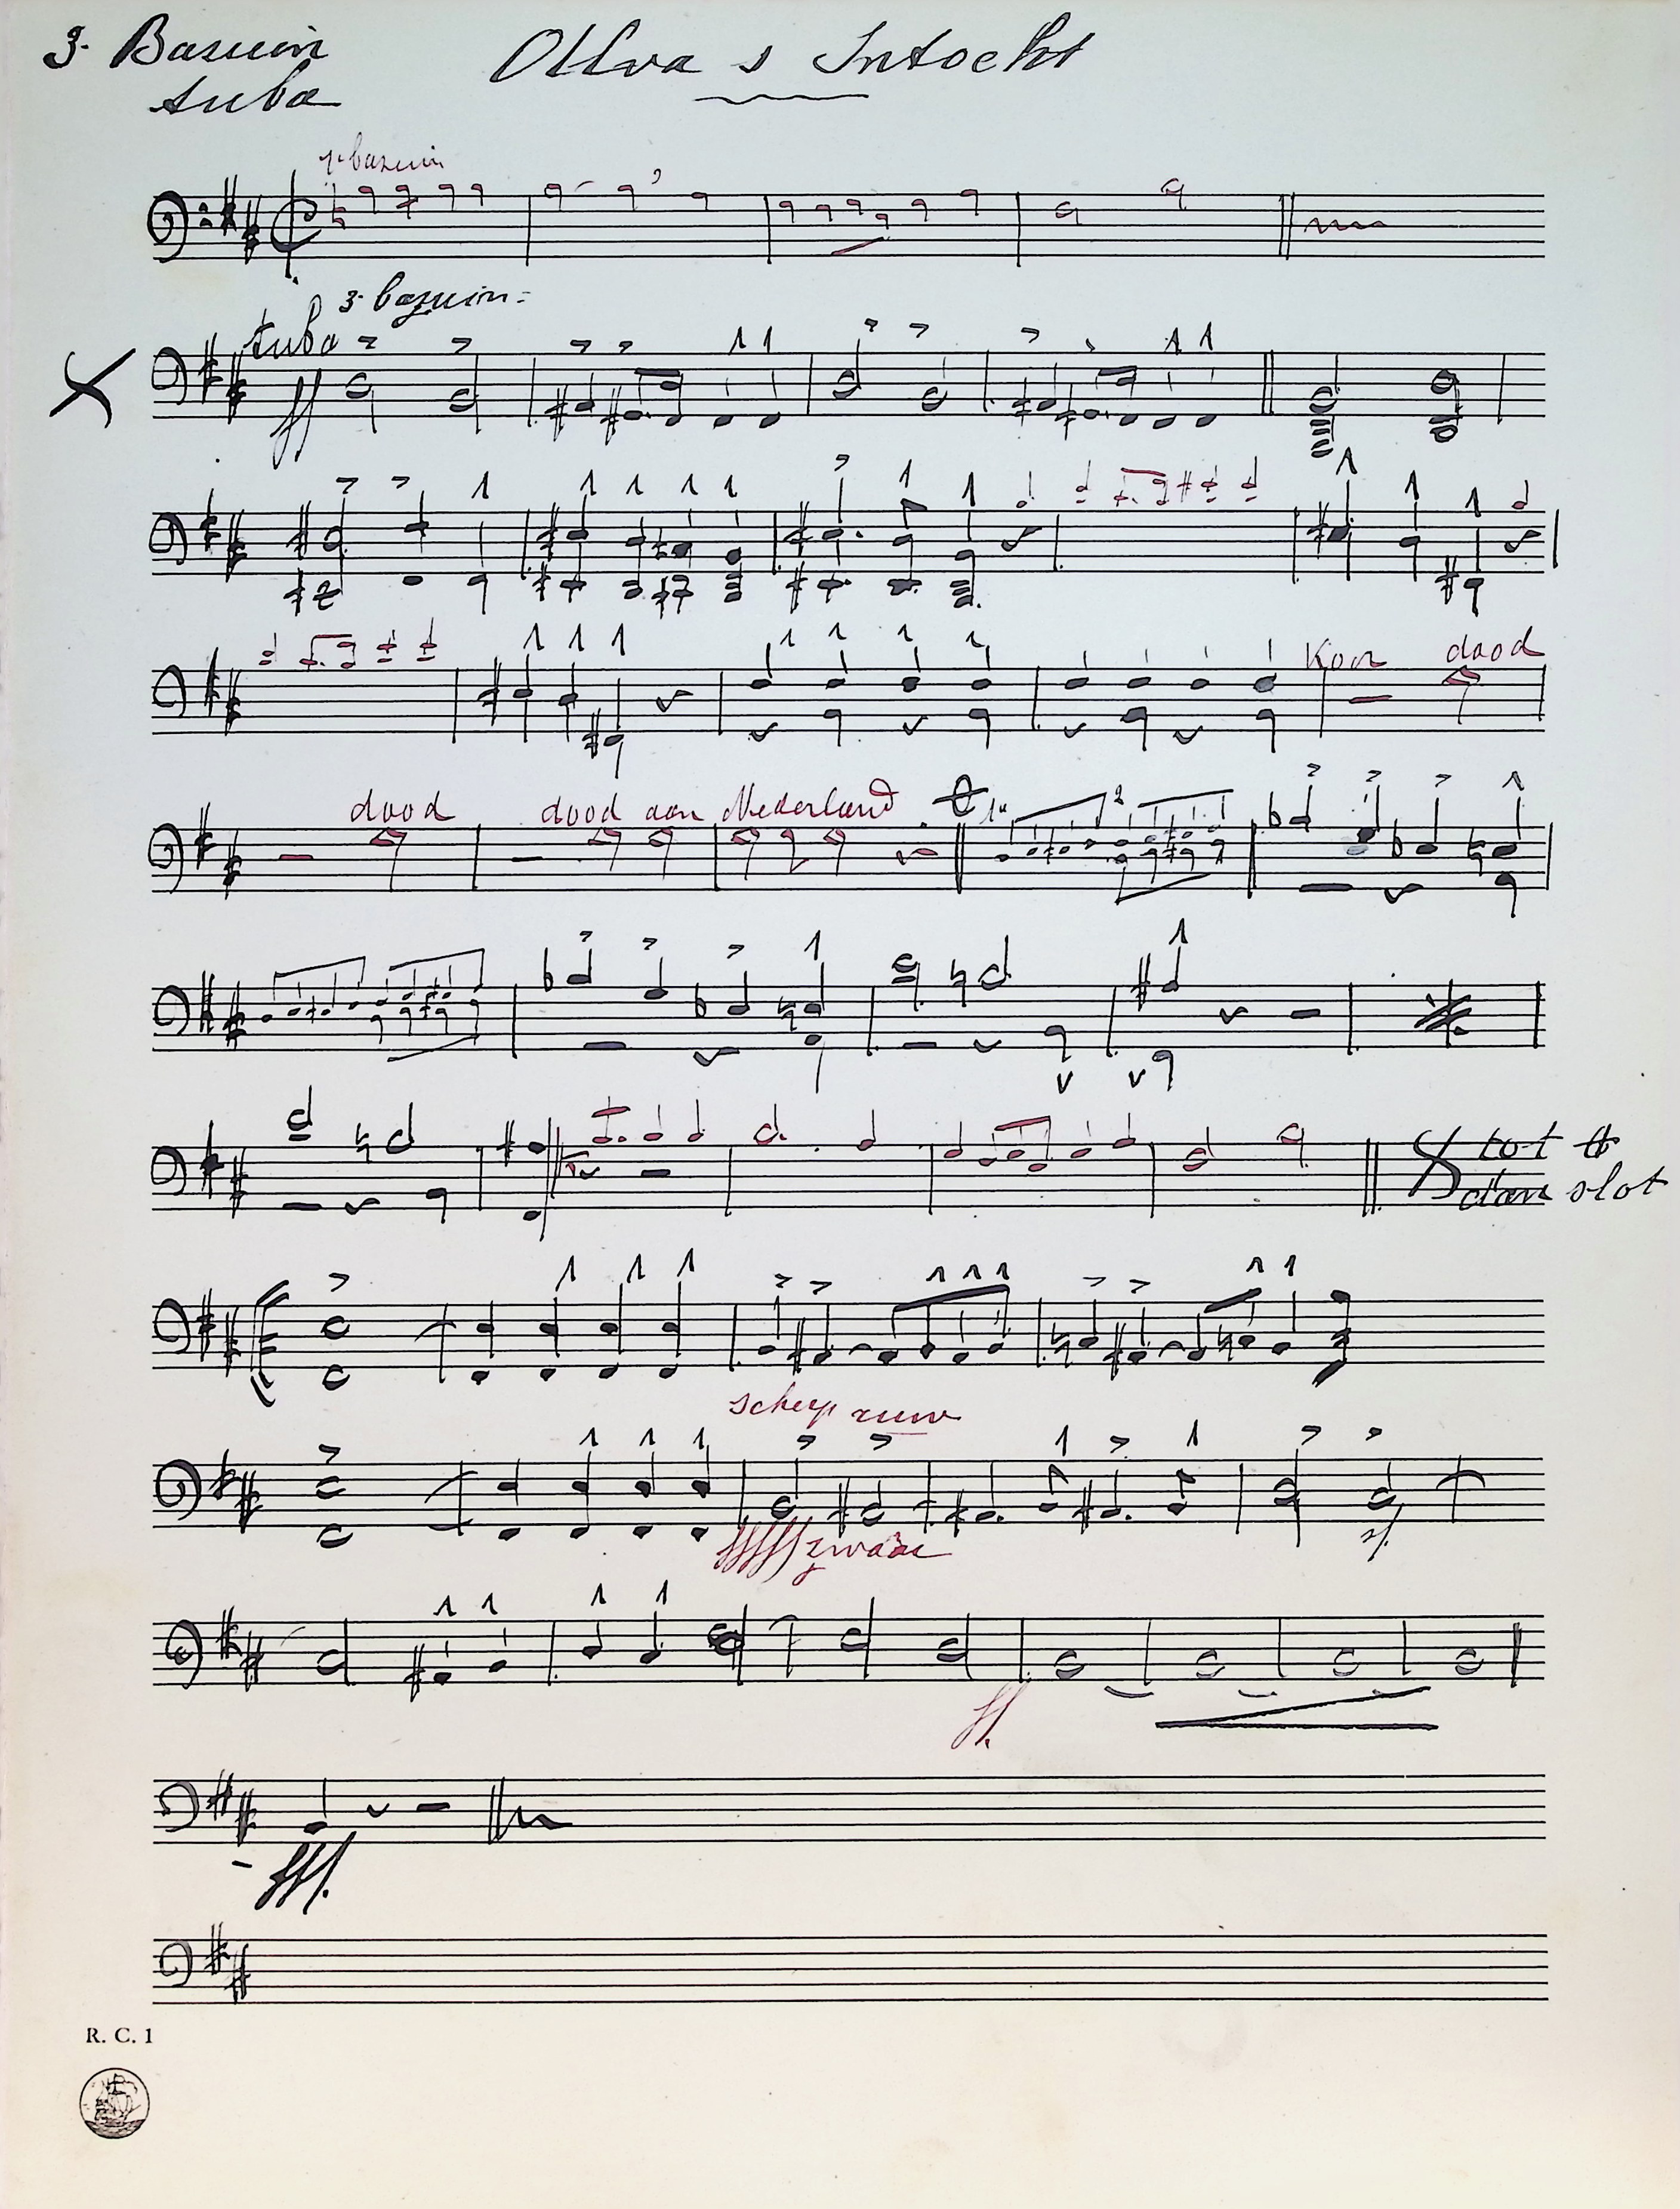 3. Basuin Ollva s Intocht
tuba
1e bazuin
3. bazuin =
tuba
ff
Koor dood
dood dood aan Nederland
1e 2
tot
dan slot
scherp ruw
fffff zwaar
sf.
ff.
fff.
R. C. 1